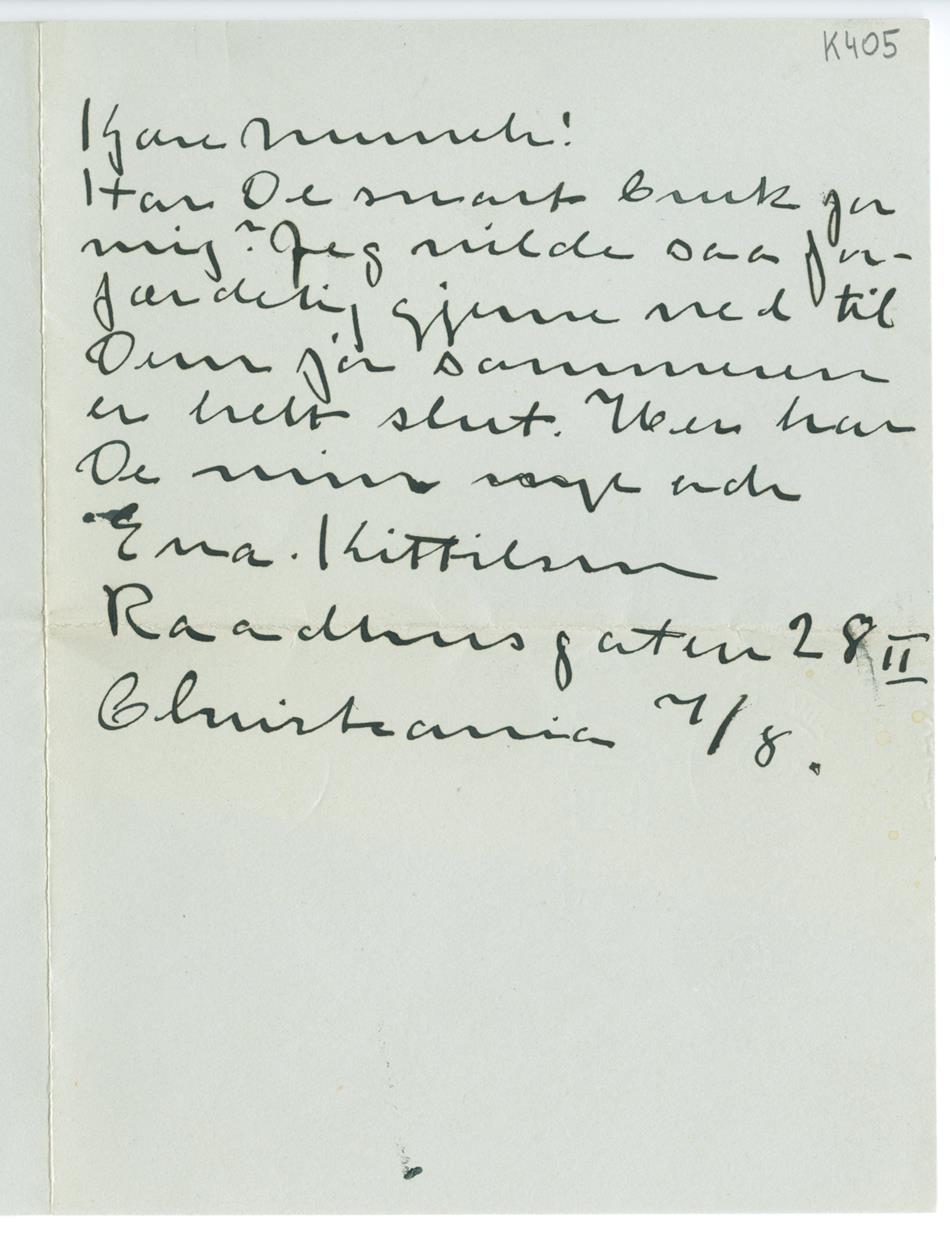 K405
Kjære Munch!
Har De snart bruk for
mig? Jeg vilde saa for-
færdelig gjerne ned til
Dem før sommeren
er helt slut. Her har
De min adr
Ena. Kittilsen
Raadhusgaten 28 II
Christiania 7/8.